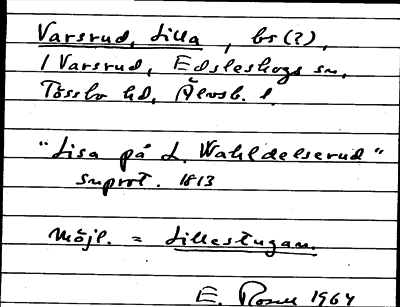 Varsrud, Lilla, bs (?),
i Varsrud, Edsleskogs sn,
Tössbo hd, Älvsb. l.
"Lisa på L. Wahldelserud"
snprot. 1813
Möjl. = Lillestugan.
E. 1964